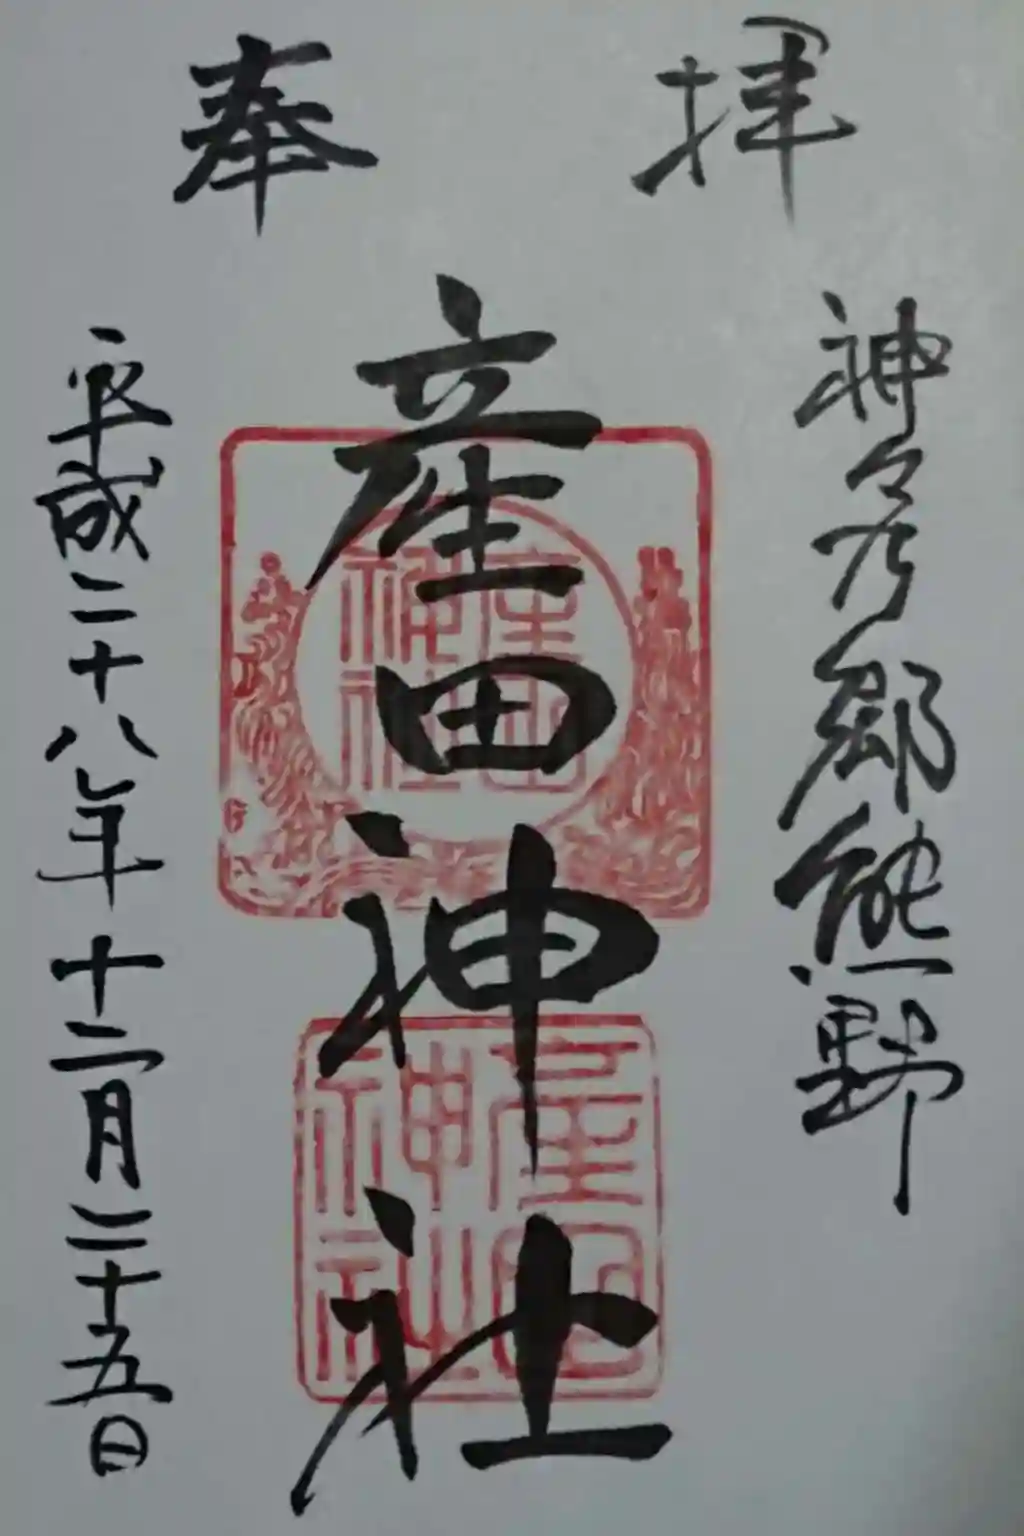 奉拝
神々乃郷熊野
産田神社
平成二十八年十二月二十五日
産田神社
産田神社